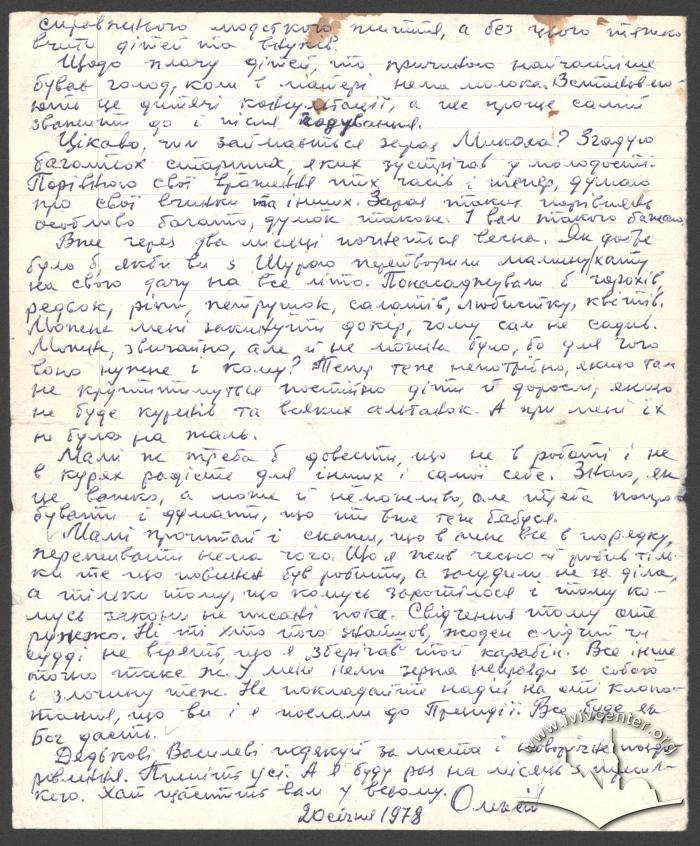 справжнього людського життя, а без цього тяжко
вчити дітей та внуків.
Щодо плачу дітей, то причиною найчастіше
буває голод, коли в матері нема молока. Встановлю-
ють це дитячі консультації, а ще проще самим
зважити до і після годування.
Цікаво, чим займається зараз Микола? Згадую
багатьох старших, яких зустрічав у молодості.
Порівнюю свої враження тих часів і тепер, думаю
про свої вчинки та інших. Зараз таких порівнянь
особливо багато, думок також. І вам такого бажаю.
Вже через два місяці почнеться весна. Як добре
було б, якби ви з Шурою перетворили мамину хату
на свою дачу на все літо. Понасаджували б горохів,
редьок, ріп, петрушок, салатів, любистку, квітів.
Можете мені закинути докір, чому сам не садив.
Можна, звичайно, але й не можна було, бо для чого
воно нужне і кому? Тепер теж непотрібно, якщо там
не крутитимуться постійно діти й дорослі, якщо
не буде курінів та всяких альтанок. А при мені їх
не було на жаль.
Мамі ж треба б довести, що не в роботі і не
в курях радість для інших і самої себе. Знаю, як
це важко, а може й неможливо, але треба попро-
бувати і думати, що ти вже теж бабуся.
Мамі прочитай і скажи, що в мене все в порядку,
переживати нема чого. Що я жив чесно й робив тіль-
ки те що повинен був робити, а засудили не за діла,
а тільки тому, що комусь захотілося і тому ко-
мусь закони не писані поки. Свідчення тому оте
ружжо. Ні ті хто його знайшов, жоден слідчий чи
судді не вірять, що я зберігав той карабін. Все інше
точно таке ж. У мені нема зерна неправди за собою
і злочину теж. Не покладайте надії на оті клопо-
тання, що ви і я послали до Президії. Все буде як
Бог дасть.
Дядькові Василеві подякуй за листа і новорічне поздо-
ровлення. Пишіть усі. А я буду раз на місяць з
Хай щастить вам у всьому. Олексій
20 січня 1978
www.lvivcenter.org